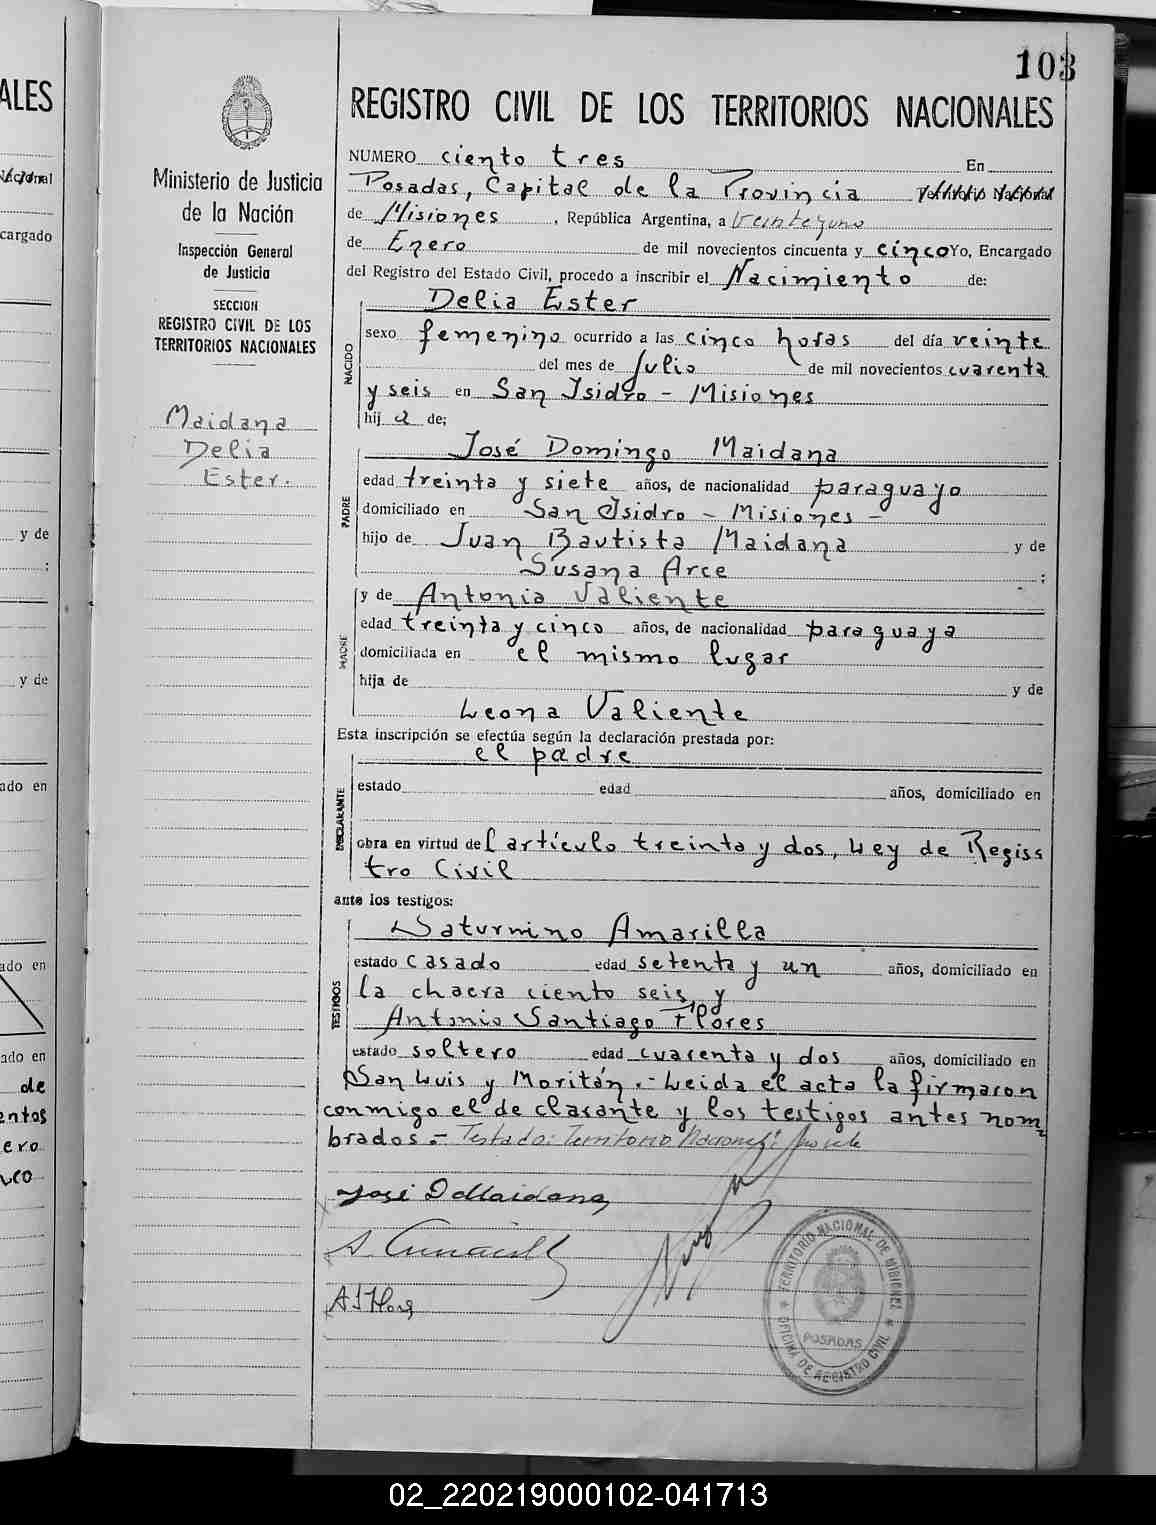 103
REGISTRO CIVIL DE LOS TERRITORIOS NACIONALES
Ministerio de Justicia
de la Nación
Inspección General
de Justicia
SECCION
REGISTRO CIVIL DE LOS
TERRITORIOS NACIONALES
Maidana
Delia
Ester.
NUMERO ciento tres En
Posadas, Capital de la Provincia Territorio Nacional
de Misiones , República Argentina, a veinteyuno
de Enero de mil novecientos cincuenta y cinco Yo, Encargado
del Registro del Estado Civil, procedo a inscribir el Nacimiento de:
Delia Ester
NACIDO
sexo femenino ocurrido a las cinco horas del día veinte
del mes de Julio de mil novecientos cuarenta
y seis en San Isidro - Misiones
hij a de;
José Domingo Maidana
PADRE
edad treinta y siete años, de nacionalidad paraguayo
domiciliado en San Isidro - Misiones -
hijo de Juan Bautista Maidana y de
Susana Arce ;
y de Antonia Valiente
MADRE
edad treinta y cinco años, de nacionalidad paraguaya
domiciliada en el mismo lugar
hija de y de
Leona Valiente
Esta inscripción se efectúa según la declaración prestada por:
el padre
DECLARANTE
estado edad años, domiciliado en
obra en virtud del artículo treinta y dos, Ley de Regiss
tro Civil
ante los testigos:
Saturnino Amarilla
TESTIGOS
estado casado edad setenta y un años, domiciliado en
la chacra ciento seis, y
Antonio Santiago Flores
estado soltero edad cuarenta y dos años, domiciliado en
San Luis y Moritán.- Leida el acta la firmaron
conmigo el declarante y los testigos antes nom
brados.- Testado: Territorio Nacional:
José D Maidana
A S Flores
TERRITORIO NACIONAL DE MISIONES
POSADAS
OFICINA DE REGISTRO CIVIL
ALES
Nacional
cargado
y de
:
y de
ado en
ado en
ado en
de
entos
ero
nco
02_220219000102-041713